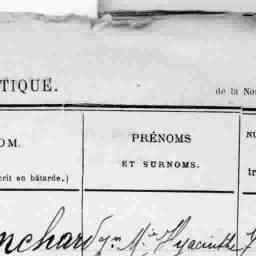 TIQUE.
de la No
OM.
PRÉNOMS
NU
ET SURNOMS.
crit en bâtarde.)
tr
nchard Jn Mie Hyacinthe